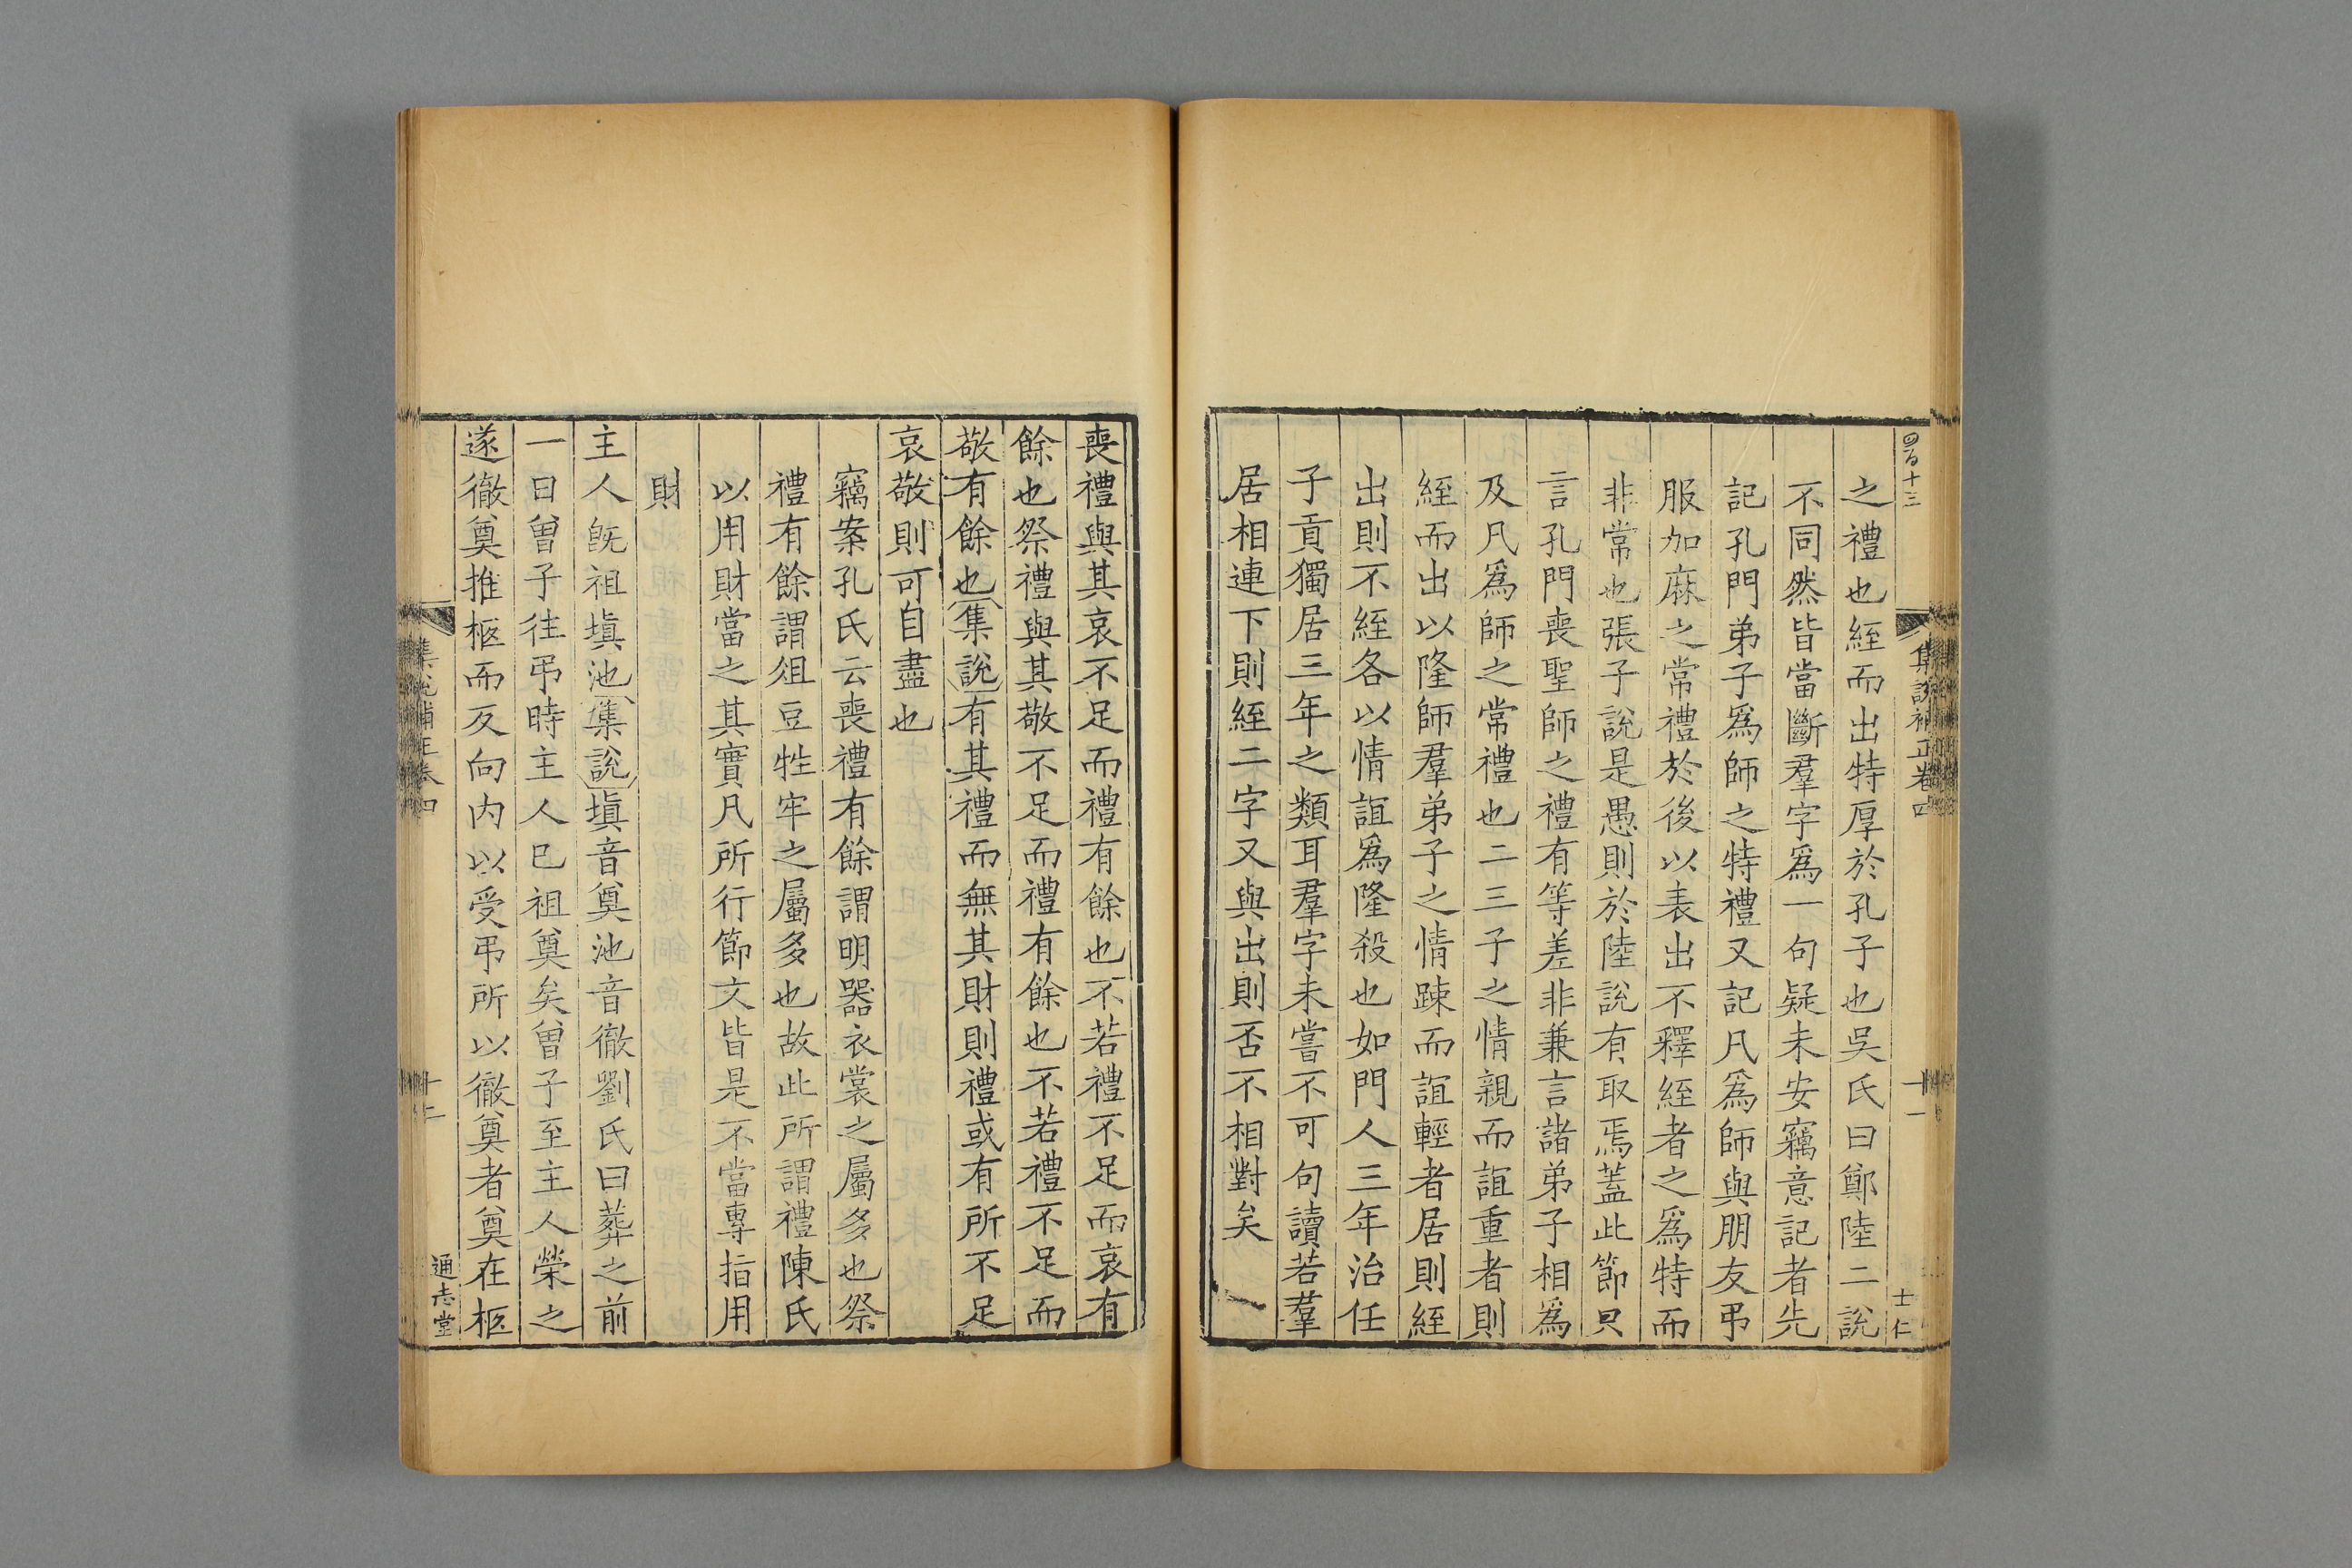 四百十三
集說補正卷四
十一
士仁
之禮也絰而出特厚於孔子也吳氏曰鄭陸二說
不同然皆當斷羣字爲一句疑未安竊意記者先
記孔門弟子爲師之特禮又記凡爲師與朋友弔
服加麻之常禮於後以表出不釋絰者之爲特而
非常也張子說是愚則於陸說有取焉蓋此節只
言孔門喪聖師之禮有等差非兼言諸弟子相爲
及凡爲師之常禮也二三子之情親而誼重者則
絰而出以隆師羣弟子之情踈而誼輕者居則絰
出則不絰各以情誼爲隆殺也如門人三年治任
子貢獨居三年之類耳羣字未嘗不可句讀若羣
居相連下則絰二字又與出則否不相對矣
喪禮與其哀不足而禮有餘也不若禮不足而哀有
餘也祭禮與其敬不足而禮有餘也不若禮不足而
敬有餘也集說有其禮而無其財則禮或有所不足
哀敬則可自盡也
竊案孔氏云喪禮有餘謂明器衣裳之屬多也祭
禮有餘謂俎豆牲牢之屬多也故此所謂禮陳氏
以用財當之其實凡所行節文皆是不當專指用
財
主人旣祖塡池集說塡音奠池音徹劉氏曰葬之前
一日曾子往弔時主人巳祖奠矣曾子至主人榮之
遂徹奠推柩而反向内以受弔所以徹奠者奠在柩
集說補正卷四
通志堂